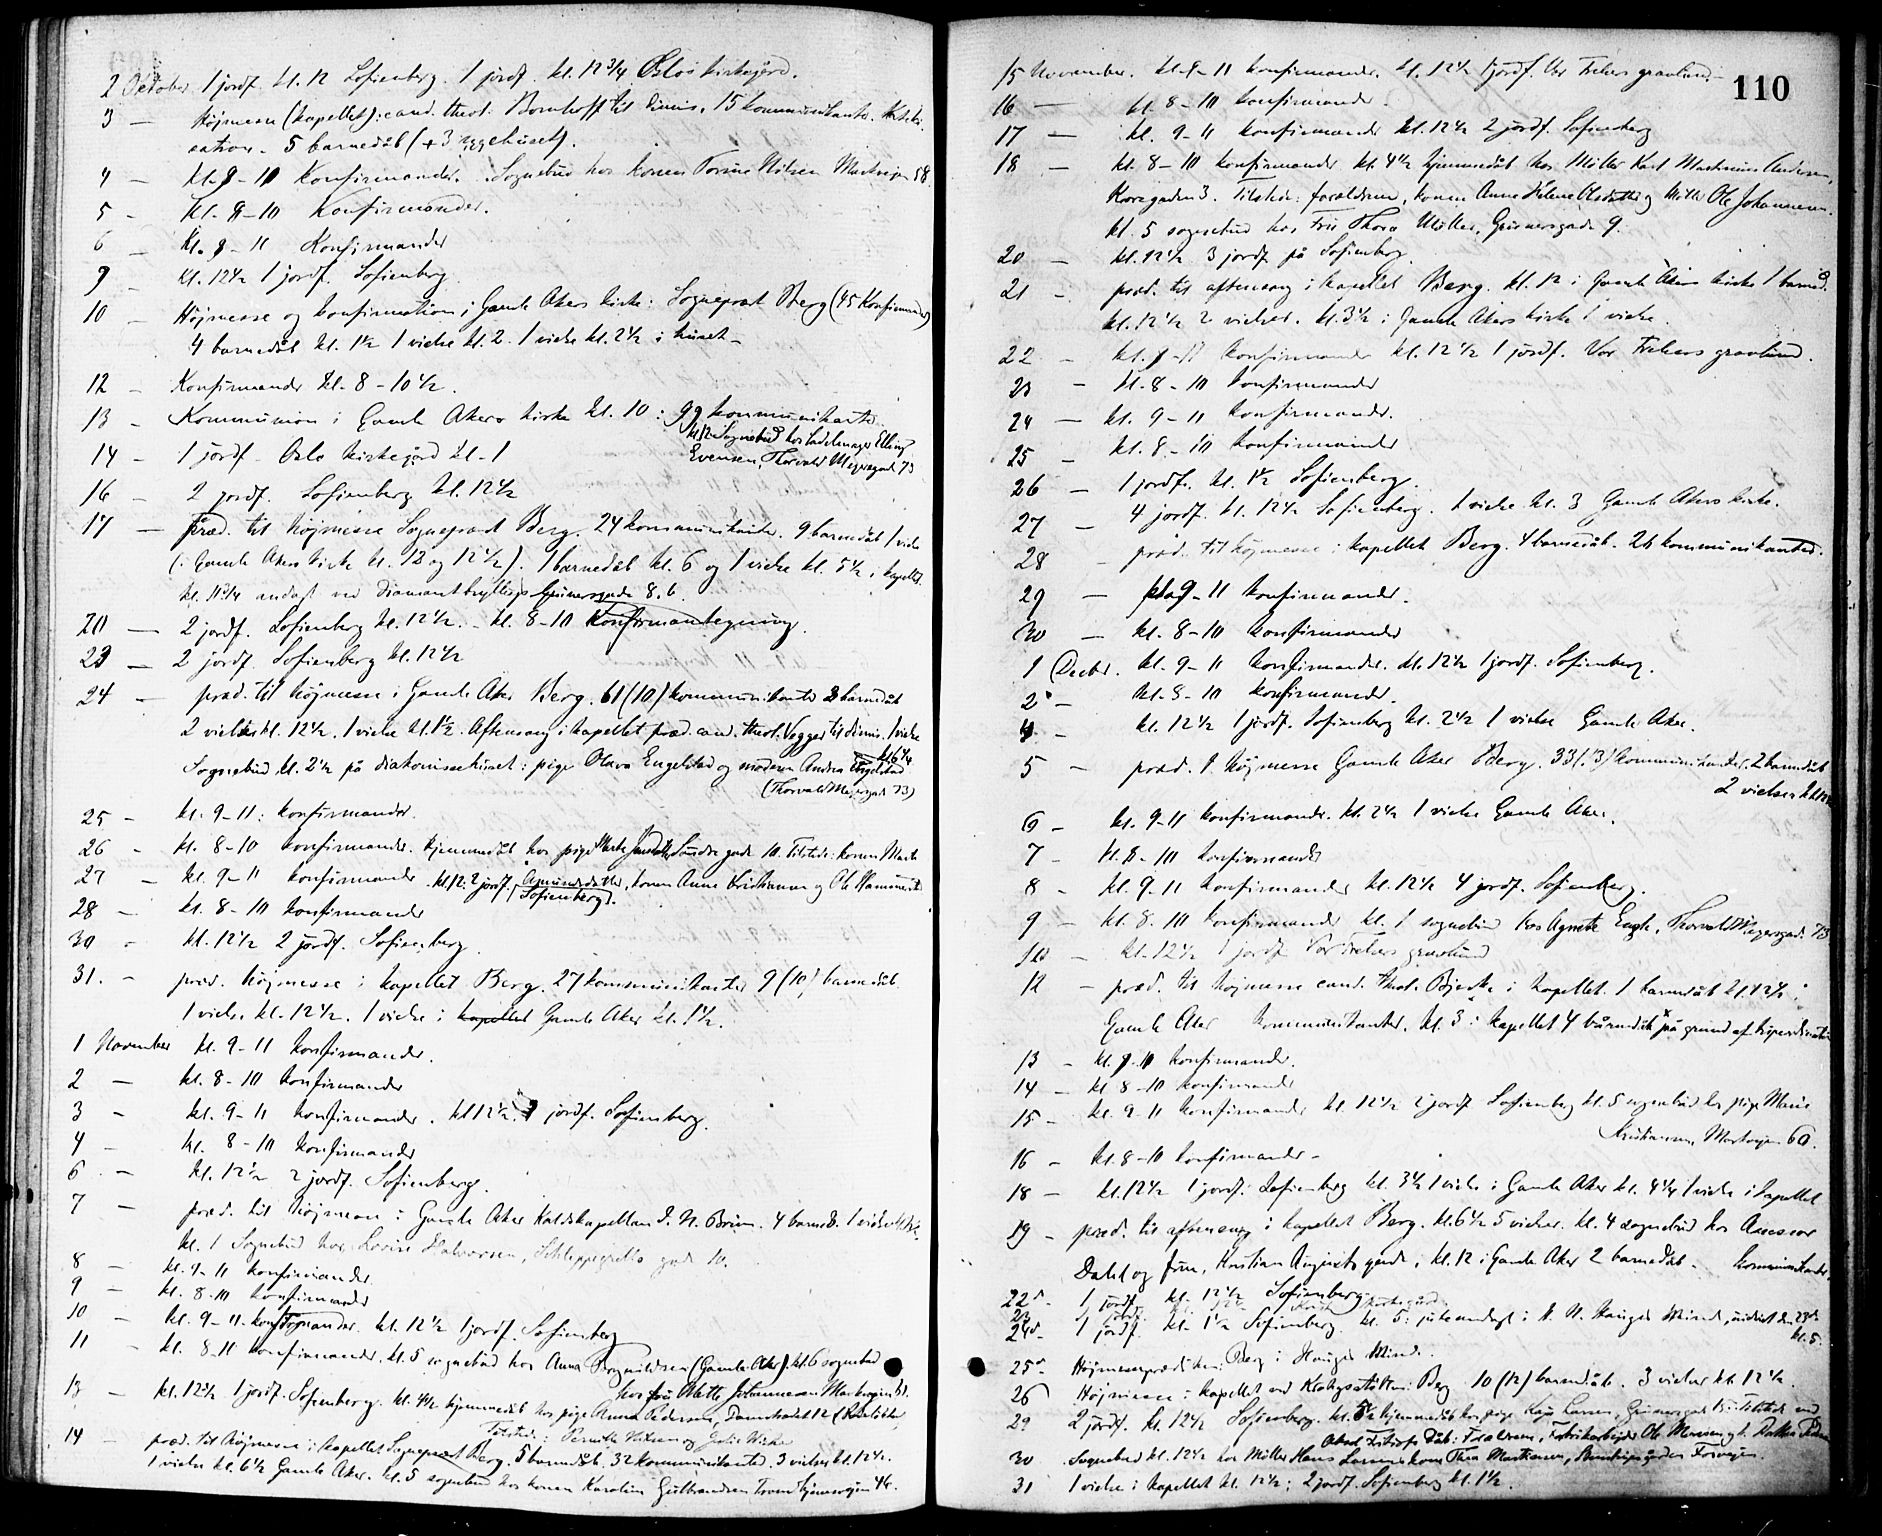 2 Oktober 1 jordf. kl. 12 Sofienberg. 1 jordf. kl. 12 3/4 Oslo kirkegård.
3 — Højmesse (kapellet): cand. theol. Bomhoff til dimis. 15 kommunikanter.
5 barnedåb (+ 3
4 — kl. 9-11 Konfirmander. Sognebud hos konen Nilsen Markvejen 58.
5 - kl. 8-10 Konfirmander.
6 - kl. 9-11 Konfirmander
9 - kl. 12 1/2 1 jordf. Sofienberg
10 - Højmesse og konfirmation i Gamle Akers kirke: Sogneprest Berg (45 Konfirmander)
4 barnedåb kl. 1 1/2 1 vielse kl. 2. 1 vielse kl. 2 1/2 i huset -
12 - Konfirmander kl. 8-10 1/2.
13 - Kommunion i Gamle Akers kirke kl. 10: 99 kommunikanter.
kl 12 Sognebud hos Sadelmager
14 - 1 jordf. Oslo kirkegård kl. 1
Evensen, Thorvald Meyersgade 73
16 - 2 jordf. Sofienberg kl. 12 1/2
17 - Præd. til højmesse Sogneprest Berg. 24 kommunikanter. 9 barnedåb 1 vielse
(i Gamle Akers kirke kl. 12 og 12 1/2). 1 barnedåb kl. 6 og 1 vielse kl. 5 1/2 i kapellet.
kl. 11 3/4 andagt ved Diamantbryllup Grünersgade 8, 6.
20 — 2 jordf. Sofienberg kl. 12 1/2. - kl. 8-10
23 — 2 jordf. Sofienberg kl. 12 1/2
24 — præd. til højmesse i Gamle Aker Berg. 61 (10) kommunikanter barnedåb
2 vielser kl. 12 1/2. 1 vielse kl. 1 1/2. Aftensang i kapellet præd. cand. theol. Vegger til dimis. 1 vielse
kl 6 1/4
Sognebud kl. 2 1/2 på diakonissehuset: pige Olava Engelstad og moderen Andrea Engelstad
(Thorvald Meyersgade 73)
25 - kl. 9-11: konfirmander.
26 - kl. 8-10 konfirmander. hjemmedåb hos pige gade 10. Tilstede: konen
27 - kl. 9-11 konfirmander kl. 12: 2 jordf. (Sofienberg). konen Anne Kristiansen og Ole
28 - kl. 8-10 konfirmander
30 - kl. 12 1/2 2 jordf. Sofienberg
31. - præd. højmesse i kapellet Berg. 27 kommunikanter 9 (10) barnedåb.
1 vielse kl. 12 1/2. 1 vielse i kapellet Gamle Aker kl. 1 1/2.
1 November kl. 9-11 konfirmander.
2 — kl. 8-10 konfirmander
3 - kl. 9-11 konfirmander. kl 12 1/2. jordf. Sofienberg.
4 - kl. 8-10 konfirmander
6 - kl. 12 1/2 2 jordf. Sofienberg.
7 - præd. til højmesse i Gamle Aker Kaldskapellan J. N. Bruun. 4 barned. 1 vielse
kl. 1 Sognebud hos Lovise Halvorsen, Schleppegrells gade 10.
8 — kl. 9-11 konfirmander
9 - kl. 8-10 konfirmander
10 - kl. 9-11. konfirmander. kl. 12 1/2 1 jordf. Sofienberg
11 - kl. 8-10 konfirmander. kl. 5 sognebud hos Anna (Gamle Aker) kl. 6 sognebud
hos fru Mette Johannesen
13 - kl. 12 1/2 1 jordf. Sofienberg. kl. 4 1/2 hjemmedåb hos pige Anna Pedersen,
Tilstede:
14 - præd. til højmesse i kapellet Sogneprest Berg. 5 barnedåb. 32 kommunikanter. 3 vielser kl. 12 1/2.
1 vielse kl. 6 1/2 Gamle Aker. kl. 5 sognebud hos konen Karoline Gulbrandsen Trondhjemsvejen 46.
110
15 November. kl. 9-11 konfirmander. kl. 12 1/2 1 jordf. Vor Frelsers gravlund -
16 — kl. 8-10 konfirmander.
17 — kl. 9-11 konfirmander kl. 12 1/2 2 jordf. Sofienberg
18 — kl. 8-10 konfirmander kl. 4 1/2 hjemmedåb hos Møller Karl Martinius Andersen,
Korsgaden 3. Tilstede: forældrene, konen Anne Helene Olsdatter og Møller Ole Johannesen.
kl. 5 sognebud hos Fru Thora Møller, Grünersgade 9.
20 - kl. 12 1/2 3 jordf. på Sofienberg
21 - præd. til aftensang i kapellet Berg. kl. 12 i Gamle Akers kirke 1 barned.
kl. 12 1/2 2 vielser. kl. 3 1/2 i Gamle Akers kirke 1 vielse.
22 - kl. 9-11 konfirmander kl. 12 1/2 1 jordf. Vor Frelsers gravlund.
23 - kl. 8-10 konfirmander
24 — kl. 9-11 konfirmander.
25 - kl. 8-10 konfirmander
26 - 1 jordf. kl. 1 1/2 Sofienberg.
27 - 4 jordf. kl. 12 1/2 Sofienberg. 1 vielse kl. 3 Gamle Akers kirke.
28 - præd. til højmesse i kapellet Berg. 4 barnedåb. 26 kommunikanter.
29 — 9-11 konfirmander.
30 — kl. 8-10 konfirmander
1 Decbr. kl. 9-11 konfirmander. kl. 12 1/2 1 jordf. Sofienberg.
2 - kl. 8-10 konfirmander.
4 - kl. 12 1/2 1 jordf. Sofienberg kl. 2 1/2 1 vielse Gamle Aker.
5 - præd. t. højmesse Gamle Aker Berg. 33 (3) kommunikanter. 2 barnedåb
2 vielser
6 - kl. 9-11 konfirmander. kl. 2 1/2 1 vielse Gamle Aker.
7 - kl. 8-10 konfirmander
8 - kl. 9-11 konfirmander kl. 12 1/2 4 jordf. Sofienberg.
9 - kl. 8-10 konfirmander kl. 1 sognebud hos Agnete Engh, Thorvald Meyersgade 73
10 - kl. 12 1/2 1 jordf Vor Frelsers gravlund
12 - præd. til højmesse cand. theol. Bjerke i kapellet. 1 barnedåb kl. 12 1/2 i
Gamle Aker kommunikanter. kl. 3 i kapellet 4 barnedåb på grund af
13 - kl. 9-11 konfirmander.
14 — kl 8-10 konfirmander
15 - kl. 9-11 konfirmander kl. 12 1/2 2 jordf Sofienberg kl. 5 sognebud hos pige Marie
Kristiansen, Markvejen 60.
16 - kl. 8-10 konfirmander -
18 - kl. 12 1/2 1 jordf. Sofienberg kl. 3 1/2 1 vielse i Gamle Aker kl. 4 1/4 1 vielse i kapellet
19 - præd. til aftensang i kapellet Berg. kl. 6 1/2 5 vielser. kl. 4 sognebud hos Assessor
Dahl og frue, Kristian Augusts gade, kl. 12 i Gamle Aker 2 barnedåb. kommunikanter.
22 - 1 jordf. kl. 12 1/2 Sofienberg
23
24 - 1 jordf. kl. 1 1/2 Sofienberg. kl. 5: juleandagt i H. N. Hauges Minde,
kl. 5.
25 - Højmesseprædiken: Berg i Hauges Minde.
26 Højmesse i kapellet ved Krohgstøtten: Berg 10 (12) barnedåb. 3 vielser kl. 12 1/2.
29 2 jordf. kl. 12 1/2 Sofienberg. kl. hjemmedåb hos pige Kaja Larsen,
dåb: Forældrene, Fabrikarbejder Ole
30 Sognebud kl. 12 1/2 hos Møller Hans Larsens kone Thea
31 1 vielse i kapellet kl. 12 1/2; 2 jordf. Sofienberg kl. 1 1/2.